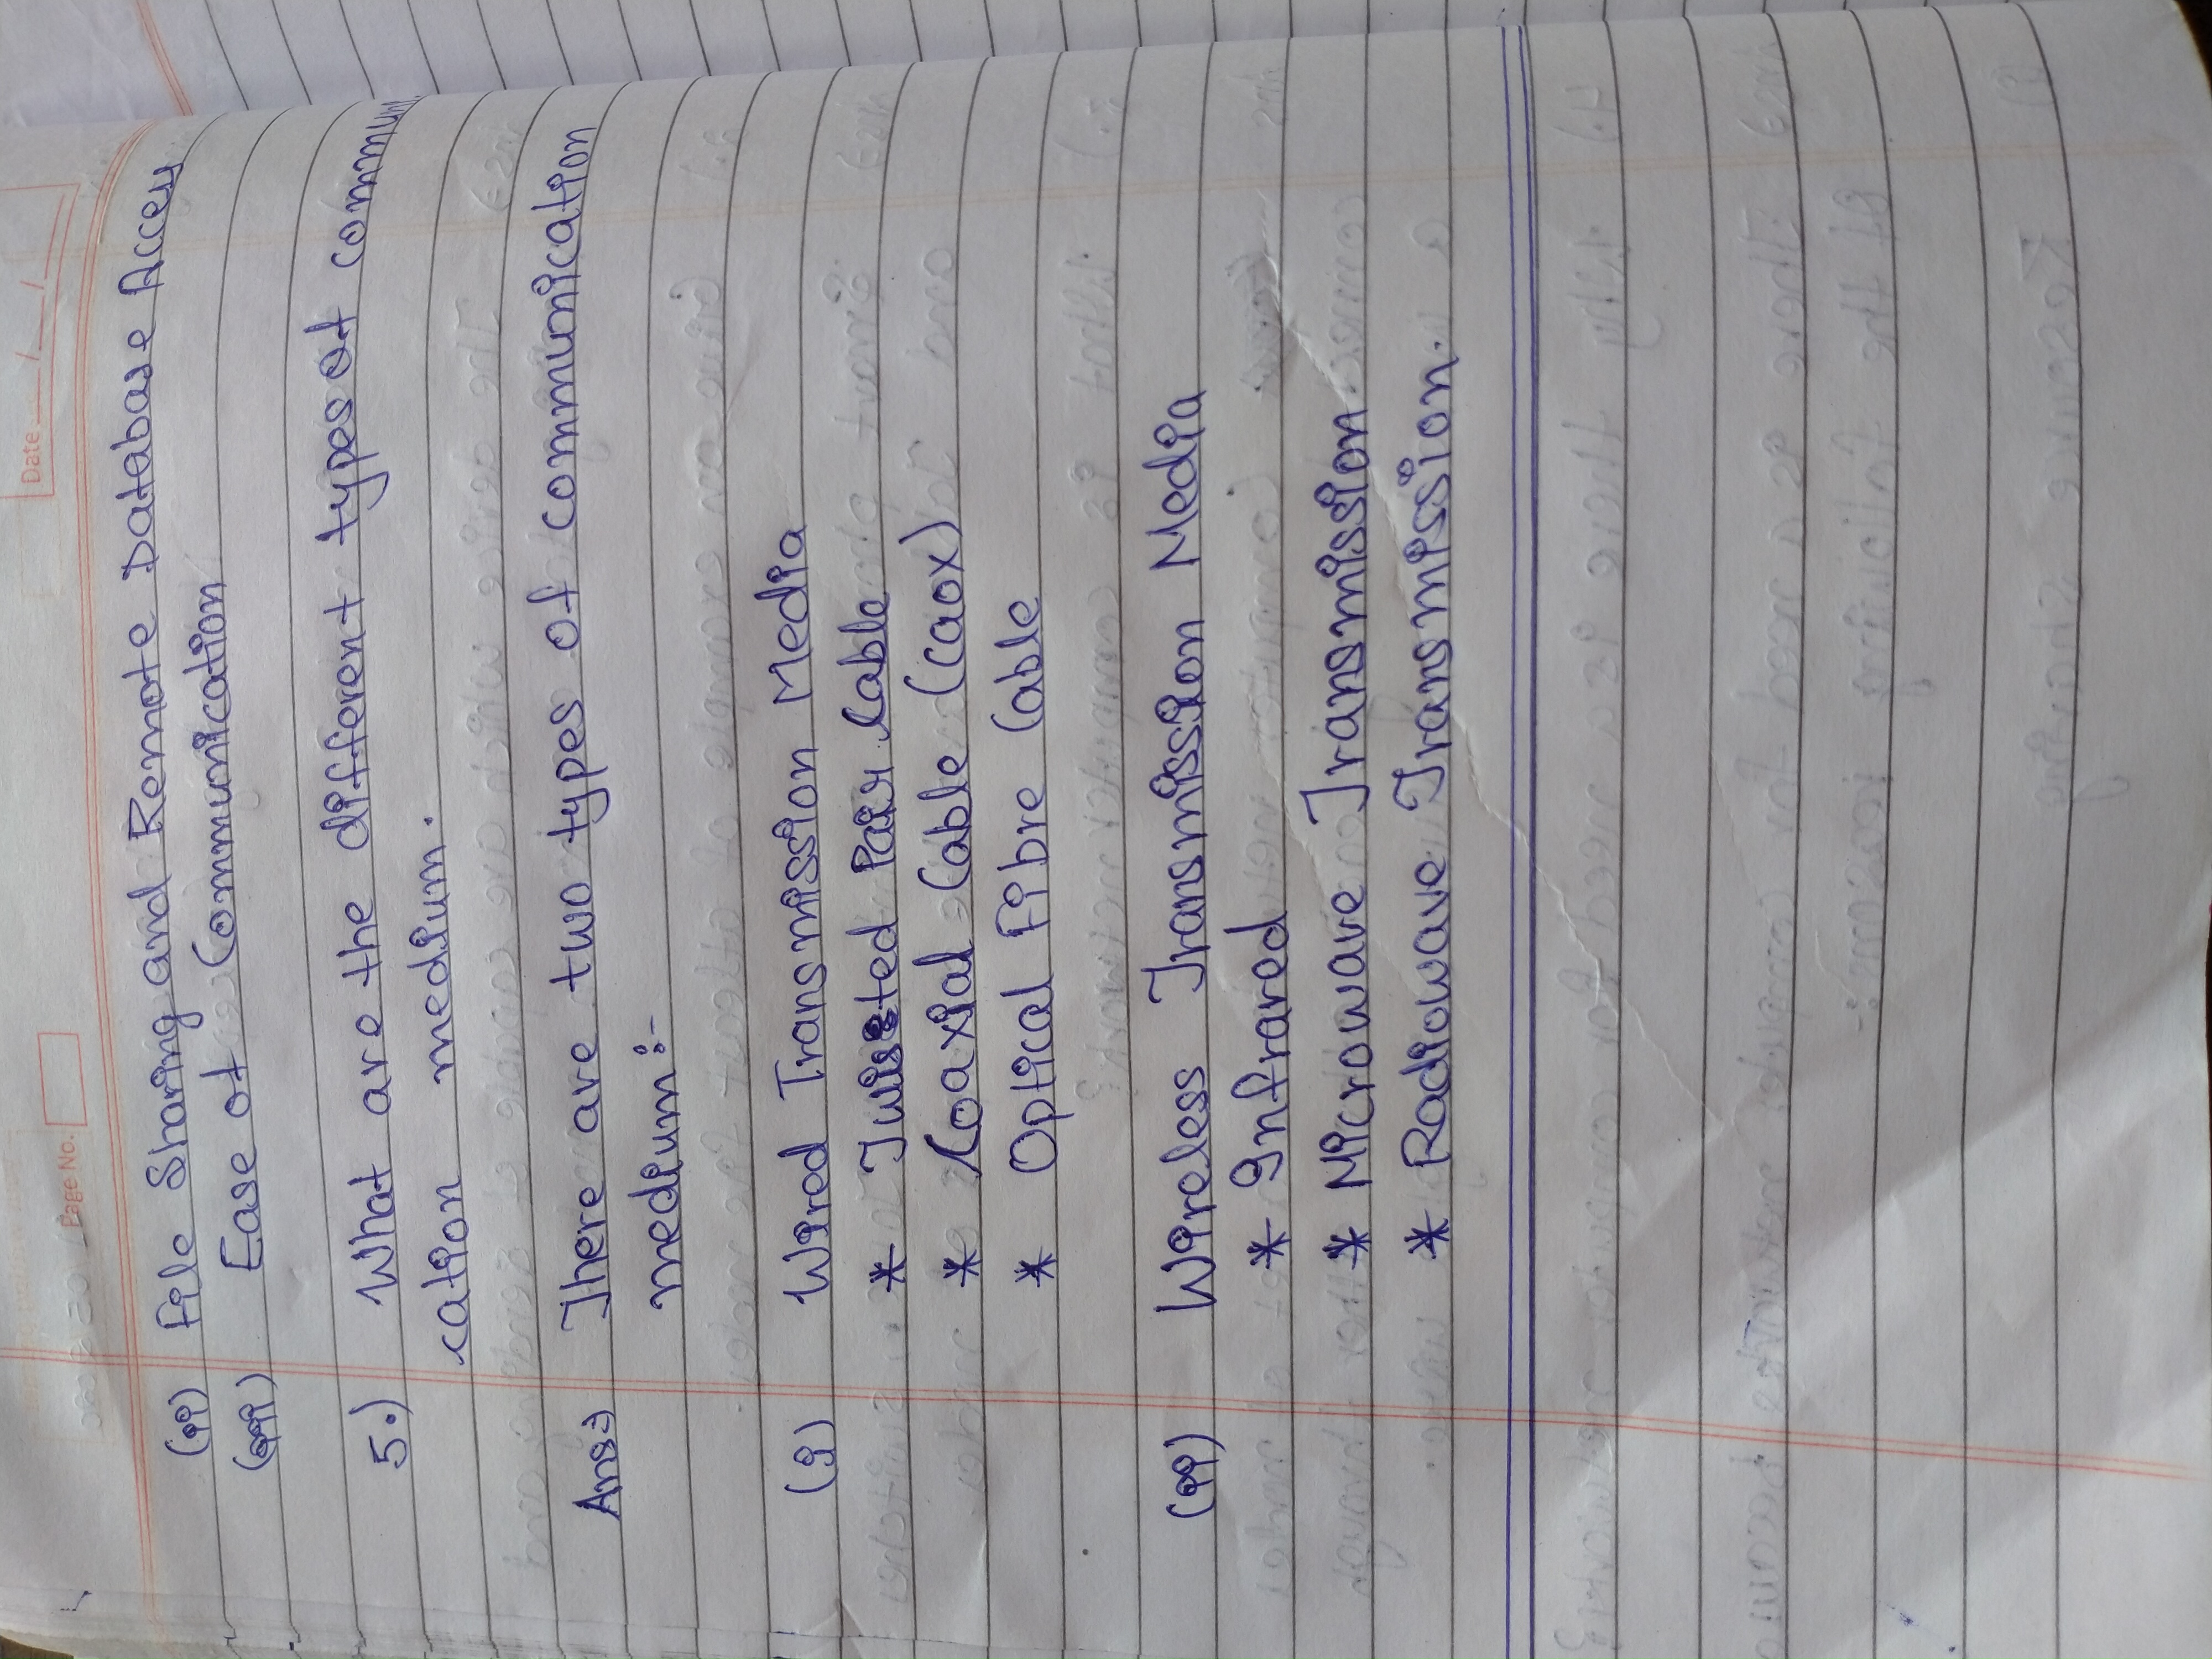 Page No.
Date / /
(ii) File Sharing and Remote Database Access
(iii) Ease of Communication
5.) What are the different types of communi
cation medium.
Ans⇒ There are two types of communication
medium:-
(i) Wired Transmission Media
* Twisted Pair Cable
* Coaxial Cable (caox)
* Optical Fibre Cable
(ii) Wireless Transmission Media
* Infrared
* Microwave Transmission
* Radiowave Transmission.